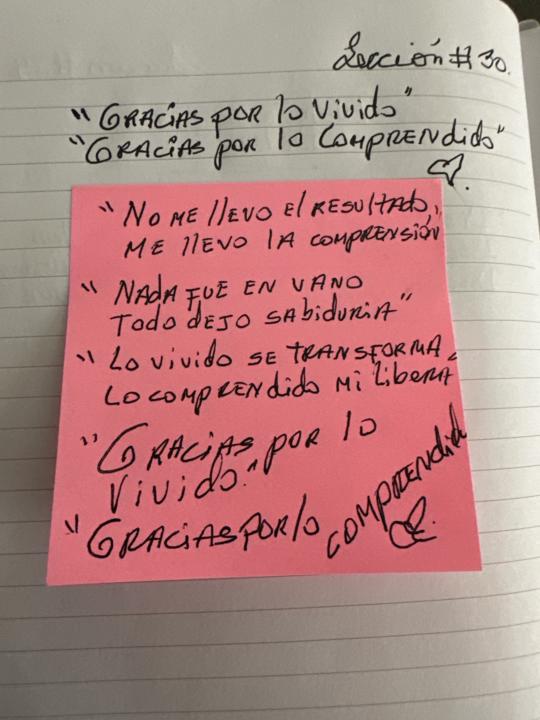 Lección #30.
"GRACIAS POR lo VIVIDO"
"GRACIAS POR lo COMPRENDIDO"
"NO ME llEVO El RESULTADO,
ME llEVO lA COMPRENSIÓN
"NADA FUE EN VANO
TODO DEJO SABIDURIA"
"LO VIVIDO SE TRANSFORMA,
LO COMPRENDIDO MI LIBERA
"GRACIAS POR lo
VIVIDO."
"GRACIAS POR lo COMPRENDID